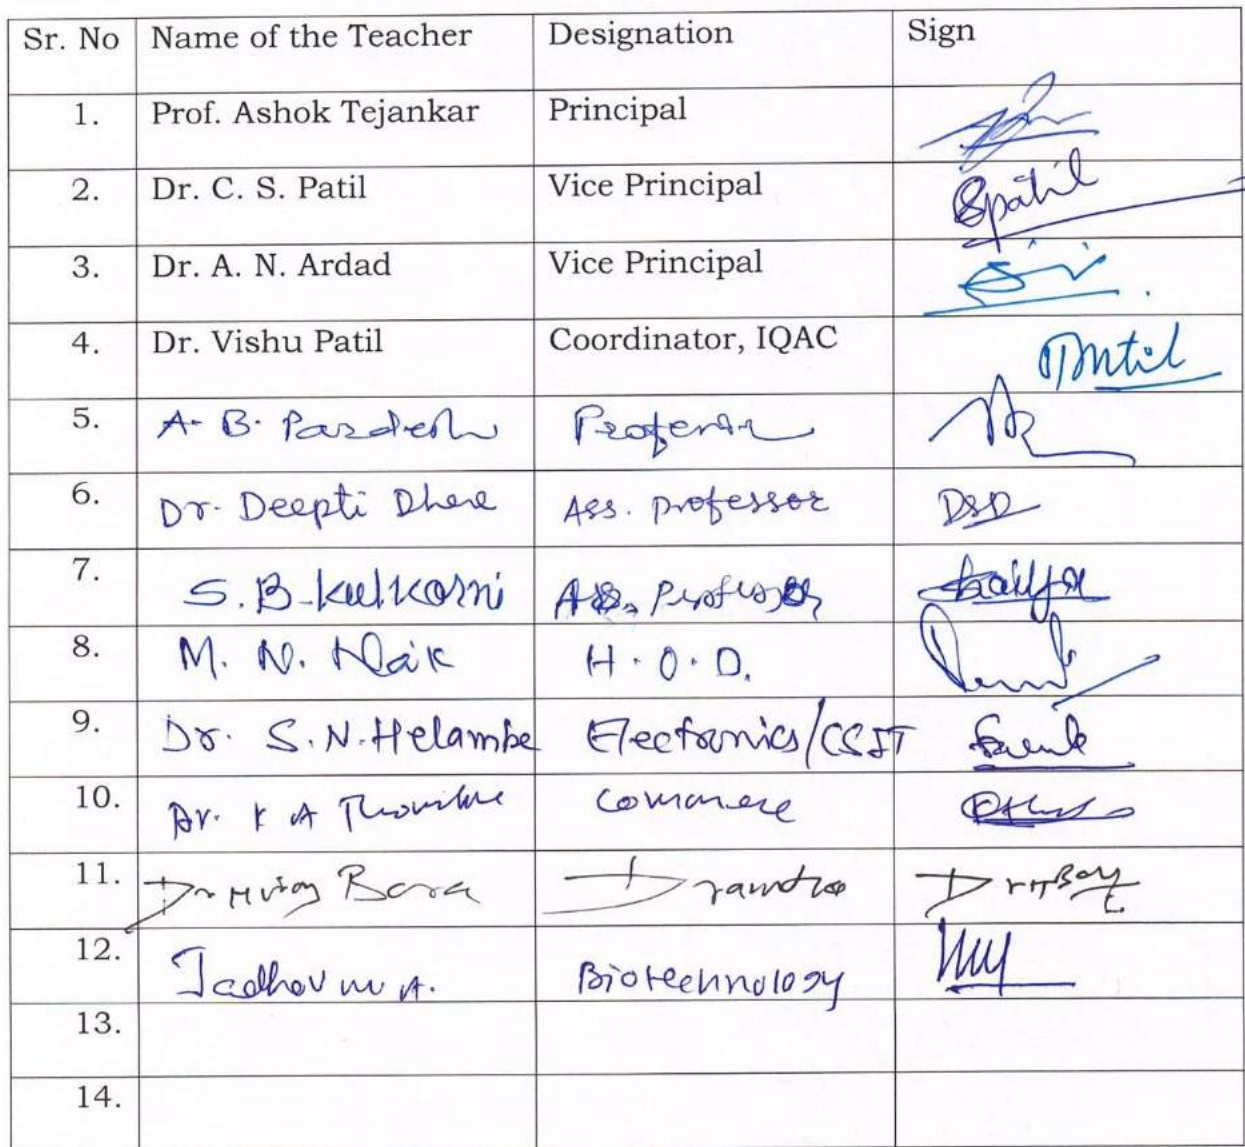 Sr. No Name of the Teacher Designation Sign
1. Prof. Ashok Tejankar Principal
2. Dr. C. S. Patil Vice Principal Spatil
3. Dr. A. N. Ardad Vice Principal
4. Dr. Vishu Patil Coordinator, IQAC
5. A. B. Pardeshi Professor
6. Dr. Deepti Dhere Ass. professor DSD
7. S. B. Kulkarni Ass. Professor
8. M. N. Naik H.O.D.
9. Dr. S. N. Helambe Electronics/CSIT
10. Dr. K A Commerce
11. Dr Bora
12. Jadhav M A. Biotechnology
13.
14.